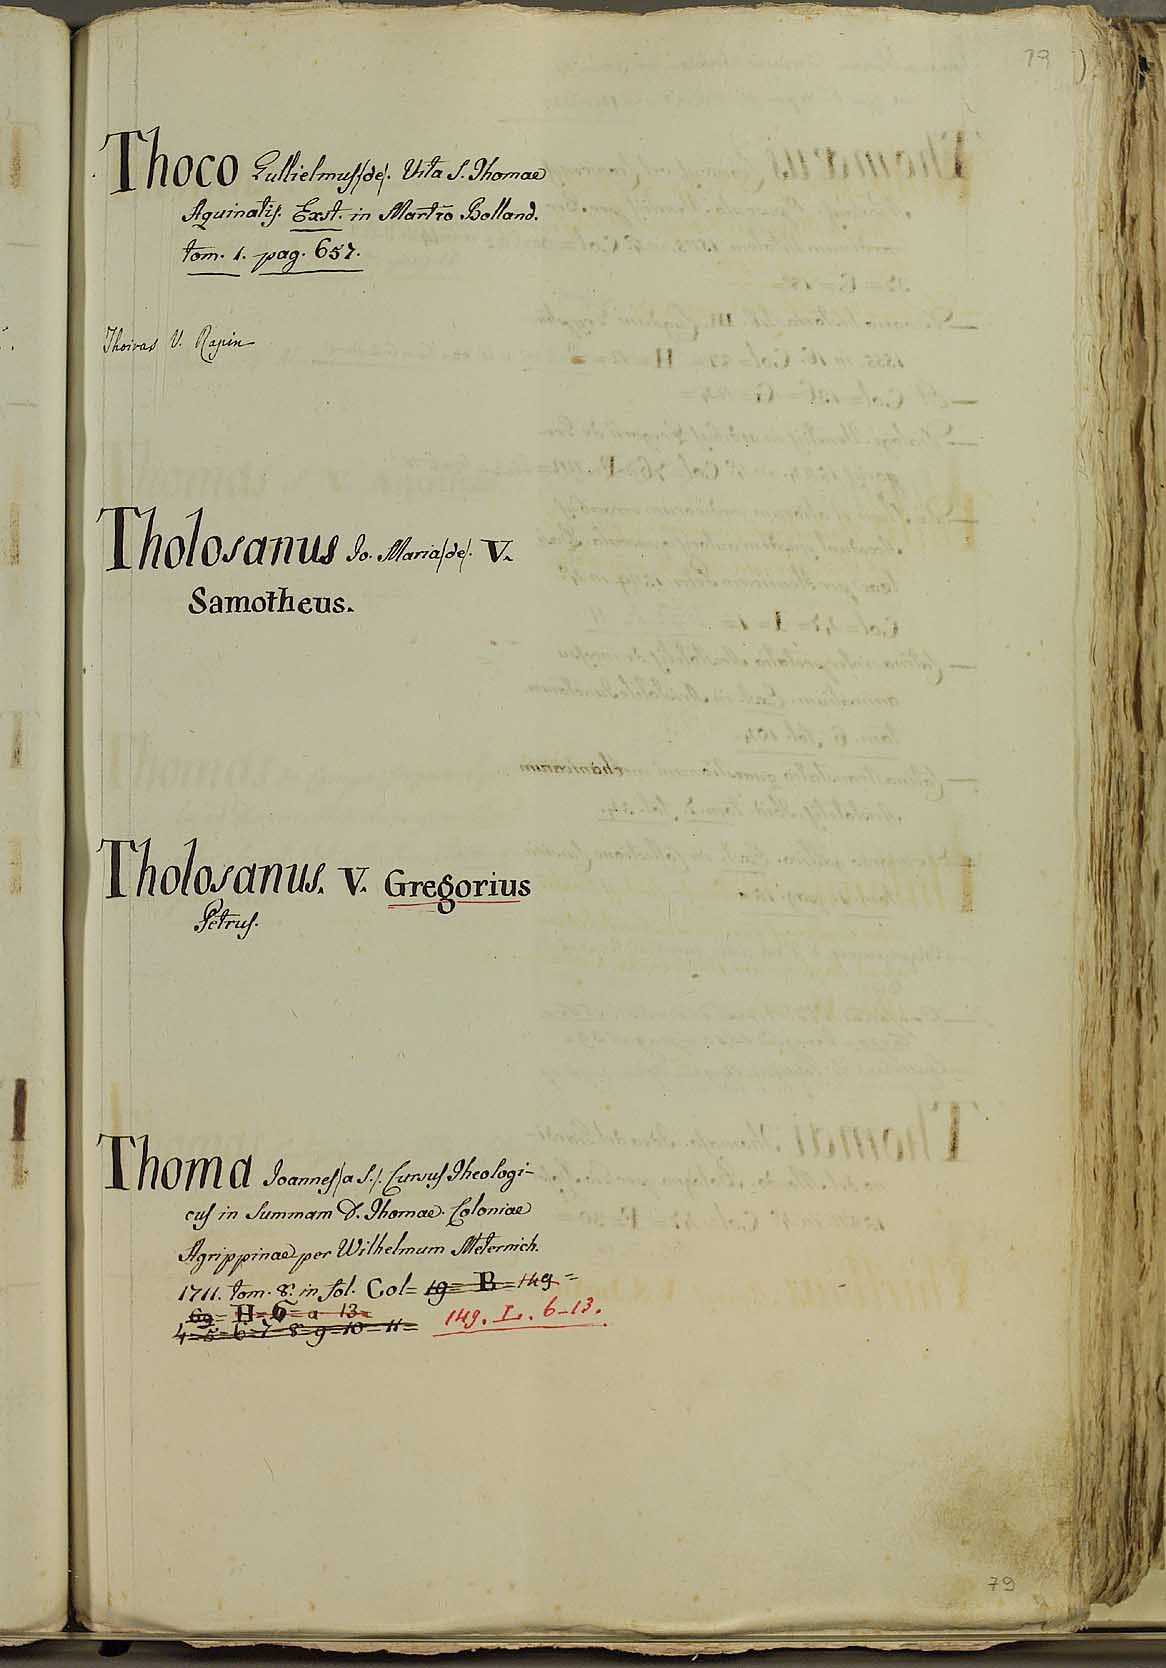 79
Thoco Gullielmus (de). Vita S. Thomae
Aquinatis. Exst. in Martio Bolland.
tom. 1. pag. 657.
Thoiras V. Rapin
Tholosanus Io. Maria (de). V.
Samotheus.
Tholosanus. V. Gregorius
Petrus.
Thoma Joannes (a S.). Cursus Theologi-
cus in Summam D. Thomae. Coloniae
Agrippinae per Wilhelmum Meternich.
1711. tom. 8. in fol. Col= 19= B= 149=
69= H= G= a 13=
4=5=6=7=8=9=10=11= 149. L. 6-13.
79